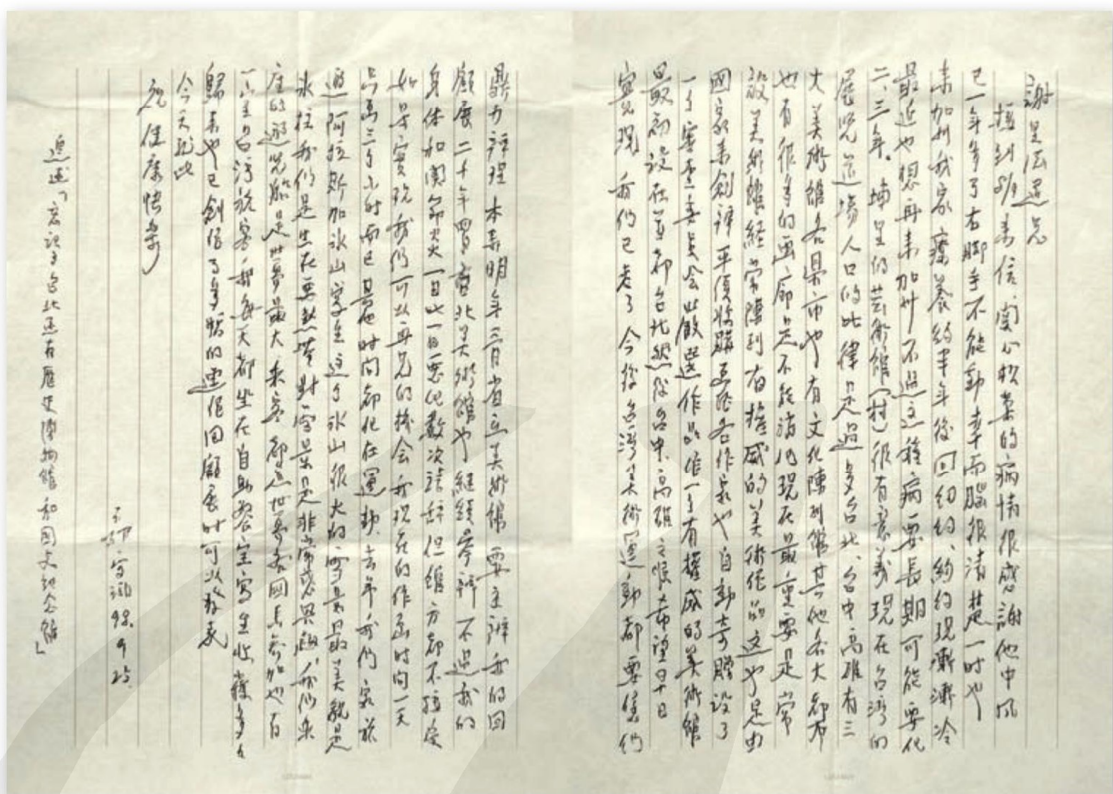 謝里法道兄
接到 來信,關心松棻的病情很感謝他中風
已一年多了右脚手不能動幸而腦很清楚一時也
来加州我家療養約半年後回紐約、紐約現漸漸冷
最近也想再来加州不過這種病要長期可能要化
二、三年。埔里的芸術館(村)很有意義現在台湾的
展覽 場人口的比律是過多台北、台中高雄有三
大美術館各県市也有文化陳列館其他各大都市
也有很多的画廊是不能消化現在最重要是常
設美術館経常陳列有権威的美術作品這也是由
國家来創辦平價收購 各作家也自動寄贈設了
一个審査委員会 嚴選作品 作一个有權威的美術館
最初設在首都台北然後台中、高雄之 希望早日
實現 我們已老了今後台灣美術運動都要 你們
鼎力辦理 本来明年三月省立美術館要主辦我的回
顧展二十年 台北美術館也継續 辦 不過我的
身体和関節炎一日比一日悪化数次請辞但館方都不接受
如早實現我們可以再見的機会我現在的作画時间一天
只画三个小时而已 其他时间都化在運動、去年我們家族
遊一阿拉斯加氷山寫生 這个氷山很大的雪景最美就是
氷柱我們是生在要熱帯對雪景是非常感興趣,我們乘
座的遊覽船是世界最大乗客都 世界各國 参加也有
台湾旅客,我每天都坐在自助餐室寫生收穫多多
歸来也已創作了多幅的画作回顧展时可以發表
今天到此
祝 健康快樂
弟 郭雪湖 98.9.25.
追述「 台北还有歴史博物館和國父記念館」